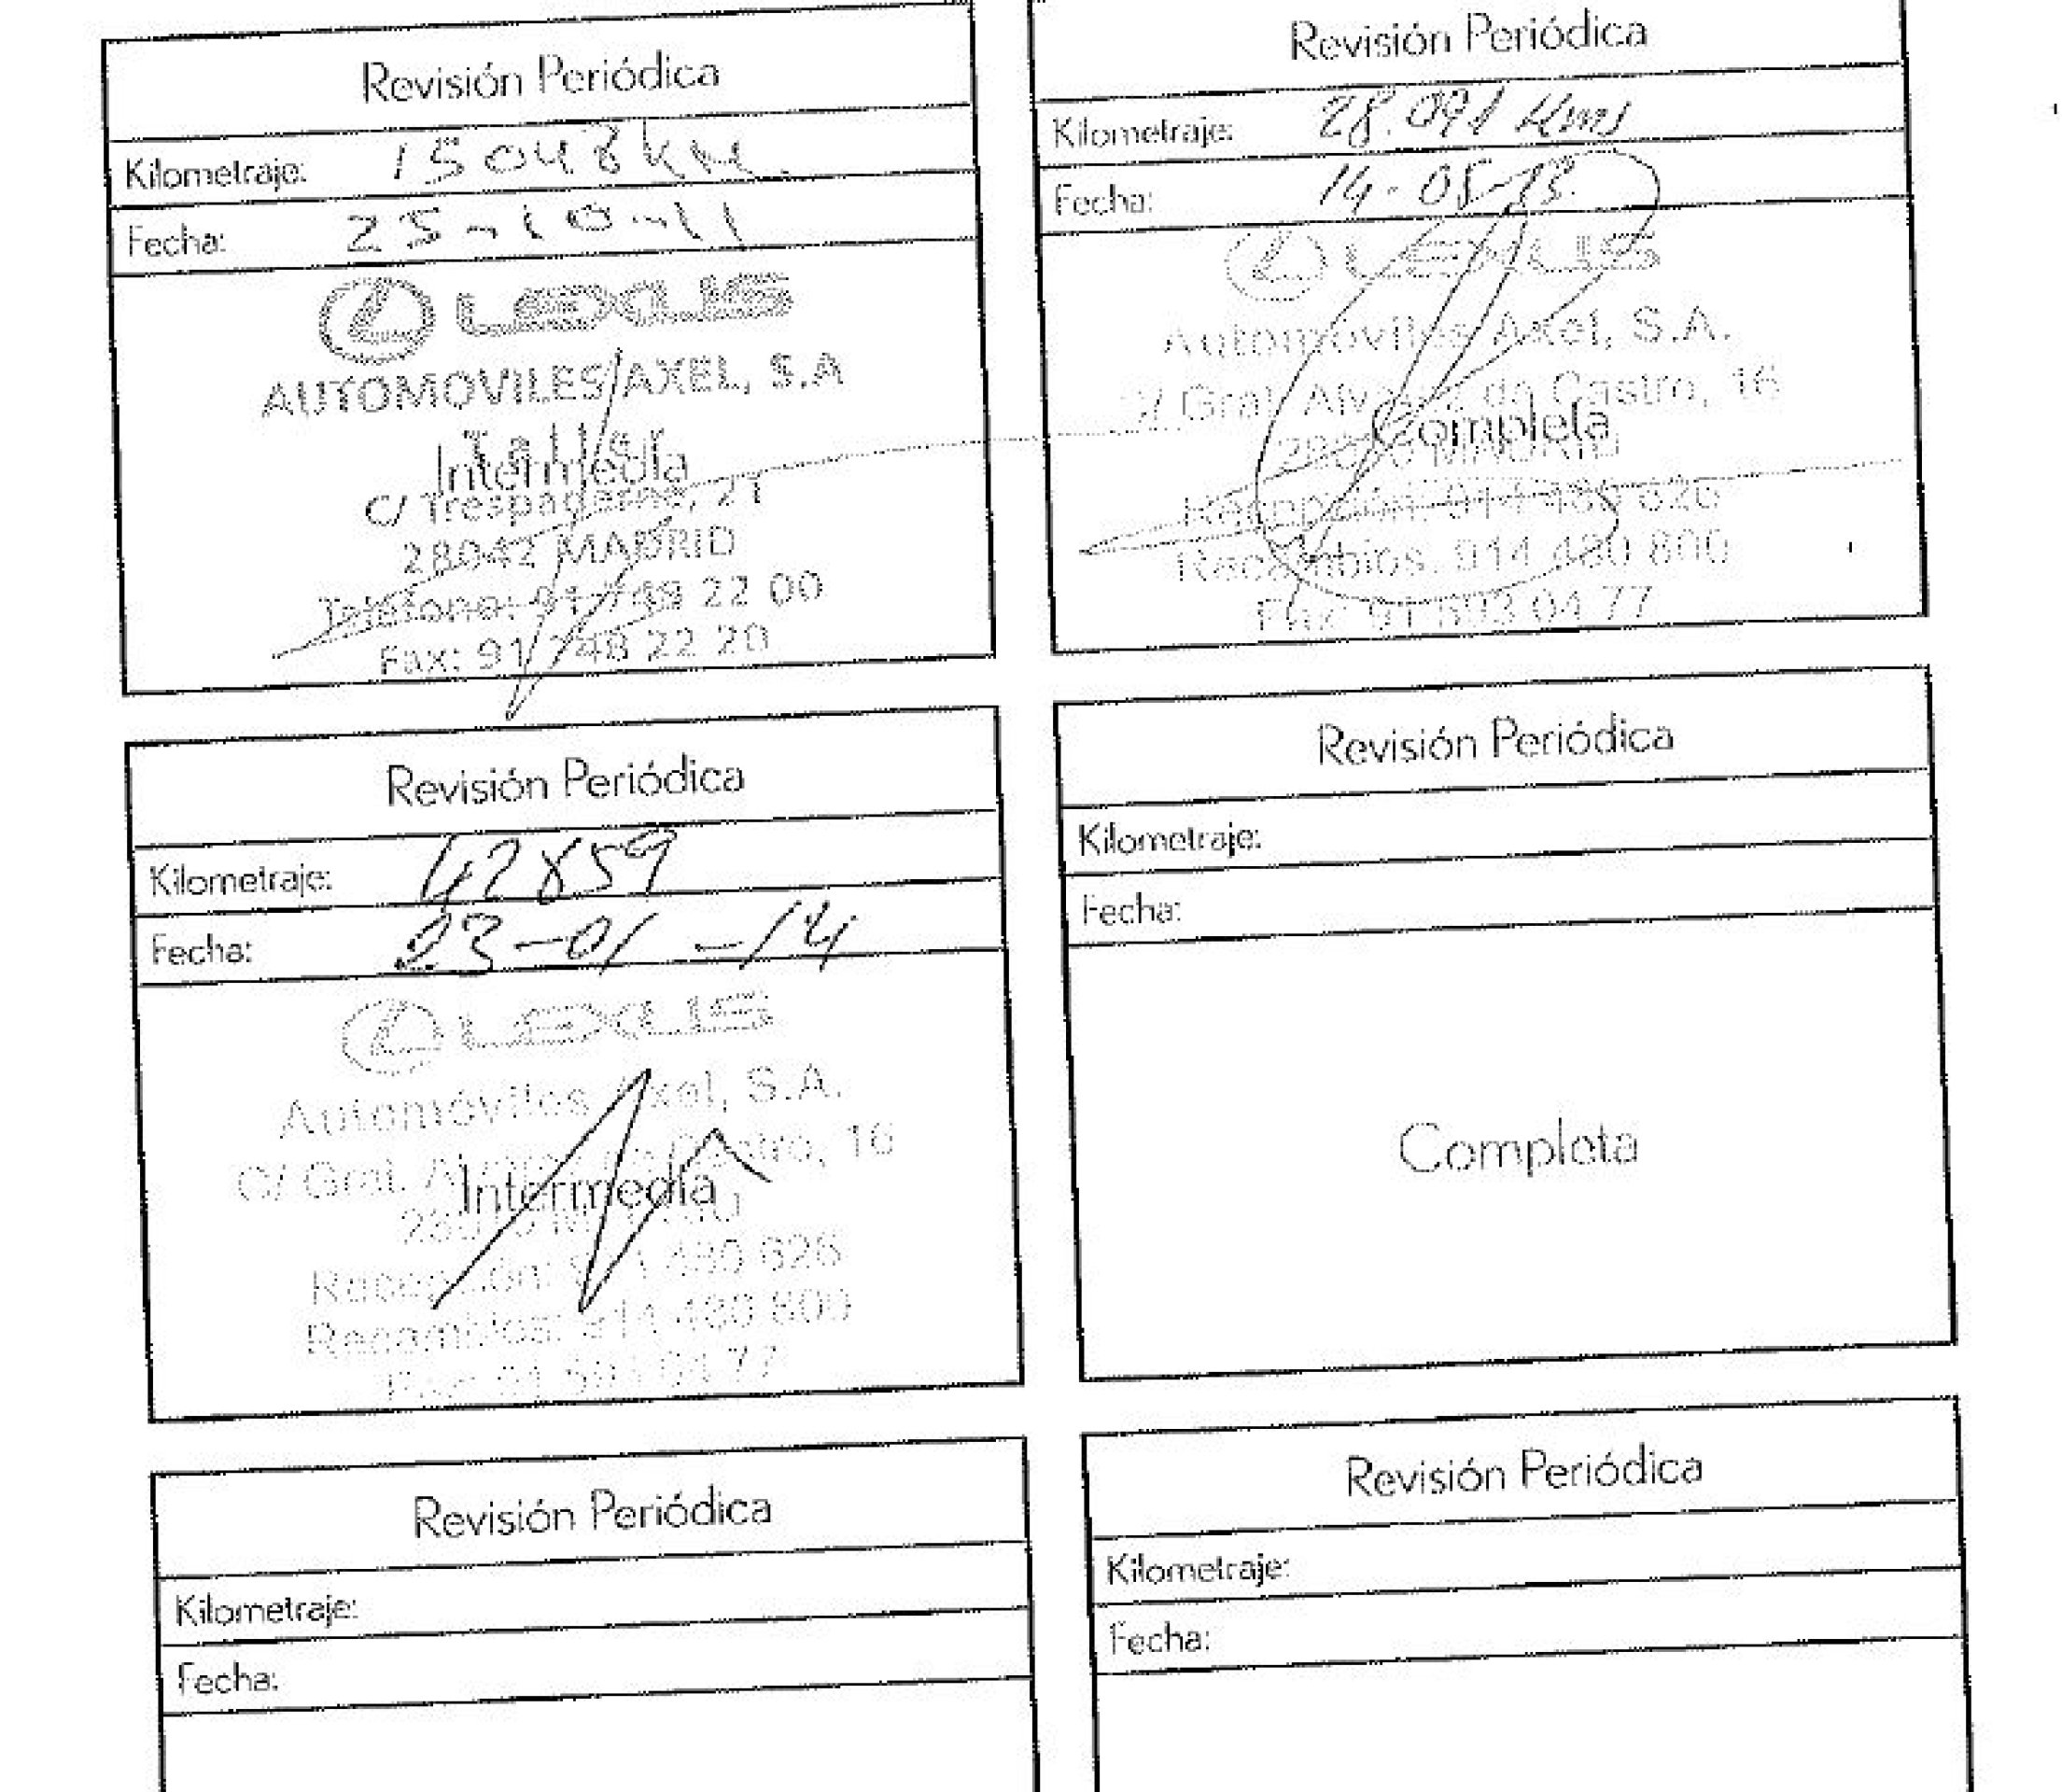 Revisión Periódica
Kilometraje: 15048 km.
Fecha: 25-10-11
LEXUS
AUTOMOVILES AXEL, S.A
Taller
Intermedia
C/ Trespaderne, 21
28042 MADRID
Teléfono: 91 748 22 00
Fax: 91 748 22 20
Revisión Periódica
Kilometraje: 28.091 Kms
Fecha: 14-05-13
LEXUS
Automóviles Axel, S.A.
C/ Gral. Alvarez de Castro, 16
Completa
28010 MADRID
Recepción: 914 480 626
Recambios: 914 480 800
Fax: 91 593 04 77
Revisión Periódica
Kilometraje: 42859
Fecha: 23-01-14
LEXUS
Automóviles Axel, S.A.
C/ Gral. Alvarez de Castro, 16
Intermedia
28010 MADRID
Recepción: 914 480 626
Recambios: 914 480 800
Fax: 91 593 04 77
Revisión Periódica
Kilometraje:
Fecha:
Completa
Revisión Periódica
Kilometraje:
Fecha:
Revisión Periódica
Kilometraje:
Fecha: